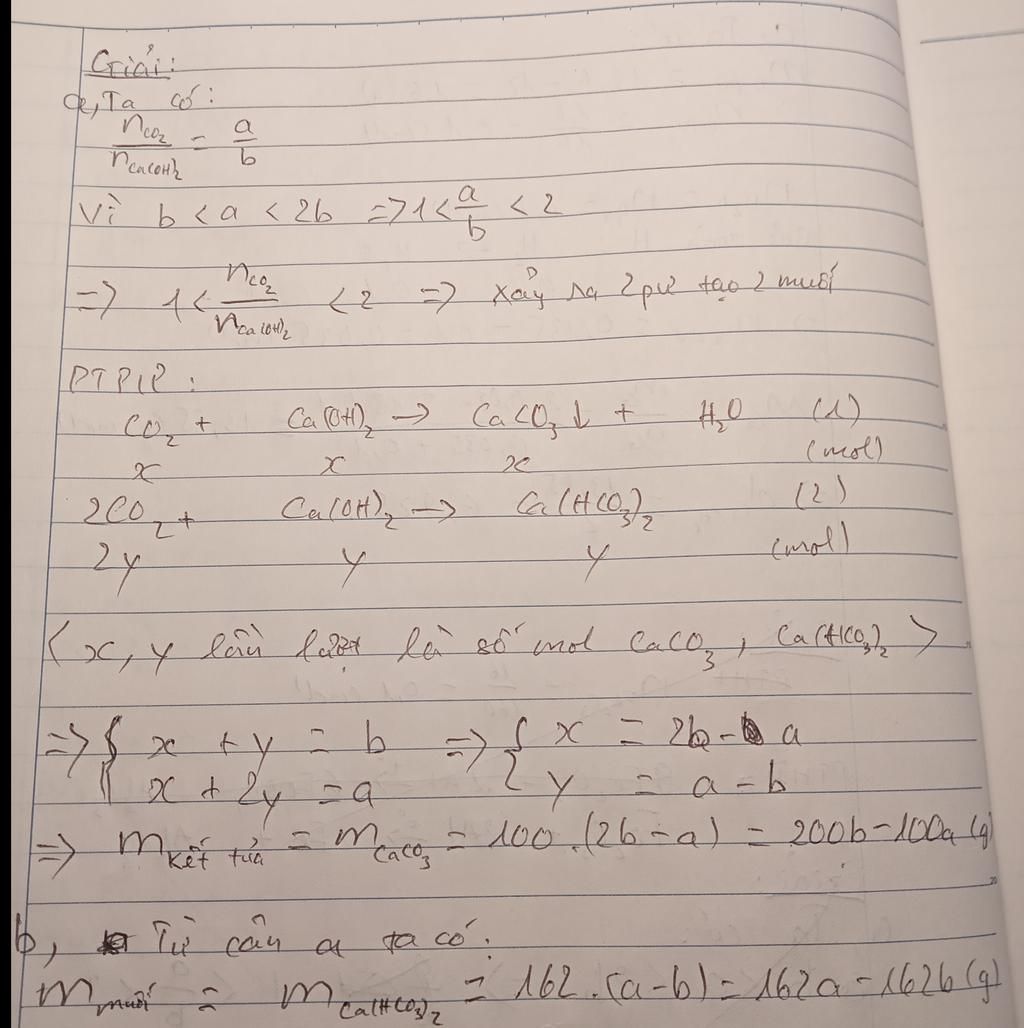 Giải:
a, Ta có:
nCO₂/nCa(OH)₂ = a/b
Vì b < a < 2b => 1 < a/b < 2
=> 1 < nCO₂/nCa(OH)₂ < 2 => xảy ra 2 pư tạo 2 muối
PTPƯ:
CO₂ + Ca(OH)₂ → CaCO₃↓ + H₂O (1)
x x x (mol)
2CO₂ + Ca(OH)₂ → Ca(HCO₃)₂ (2)
2y y y (mol)
(x, y lần lượt là số mol CaCO₃, Ca(HCO₃)₂)
=> { x + y = b => { x = 2b - a
x + 2y = a y = a - b
=> m kết tủa = mCaCO₃ = 100.(2b - a) = 200b - 100a (g)
b, Từ câu a ta có:
m muối = mCa(HCO₃)₂ = 162.(a-b) = 162a - 162b (g)